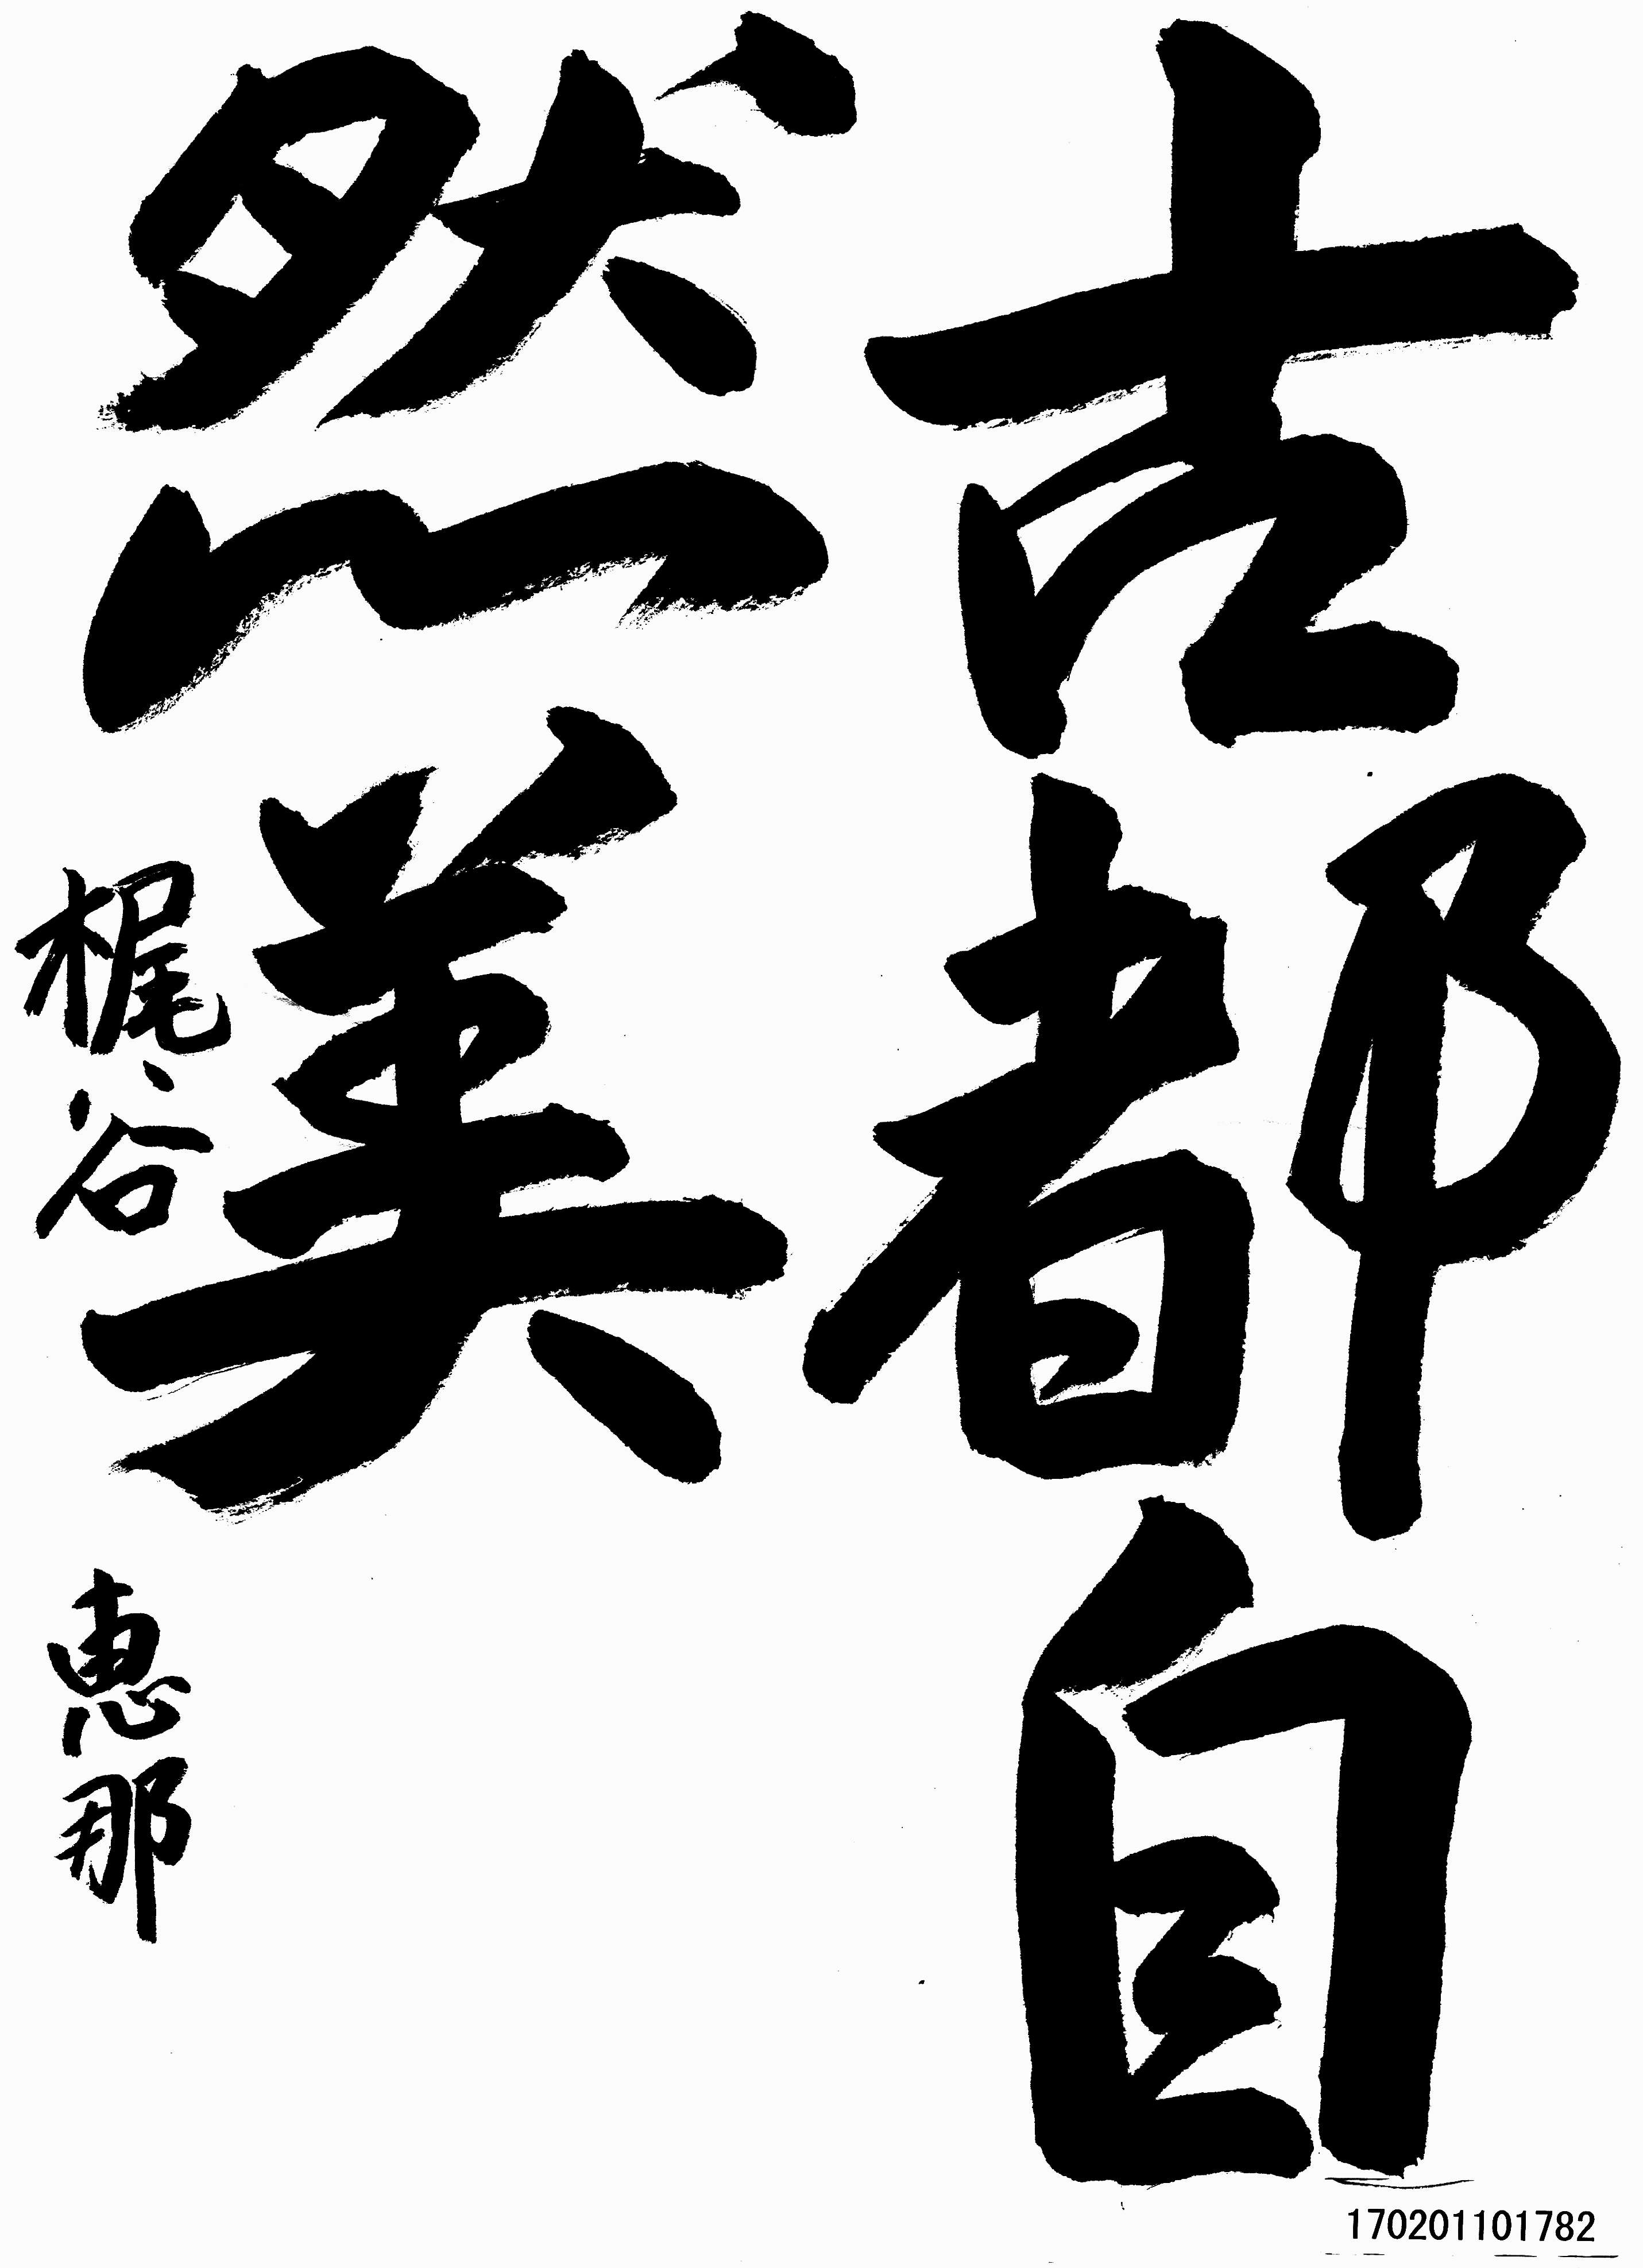 古都自
然美
梶谷 恵那
170201101782